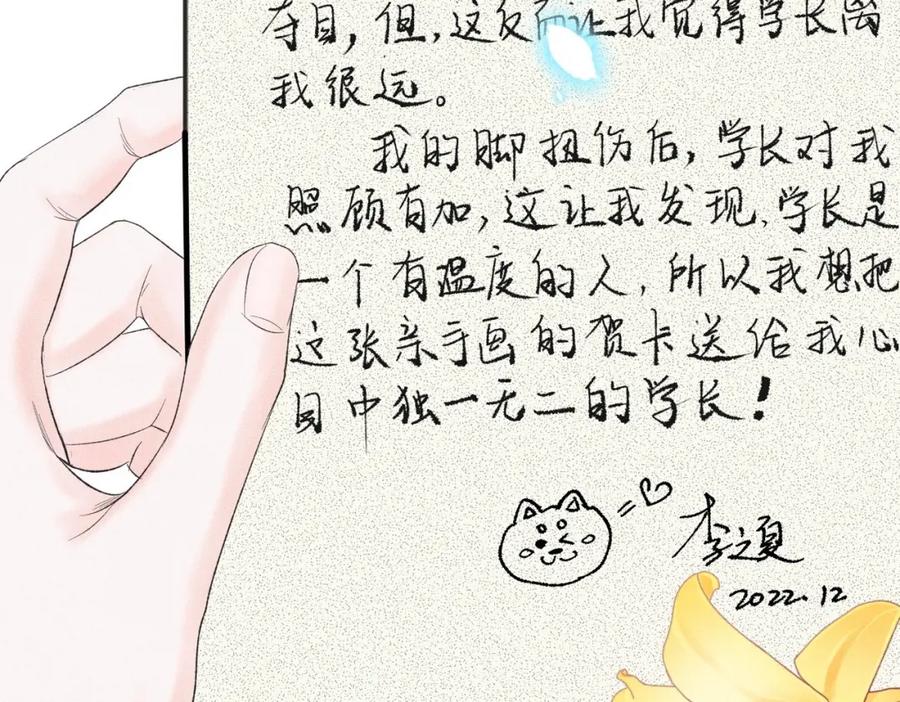 夺目，但，这反而让我觉得学长离
我很远。
我的脚扭伤后，学长对我
照顾有加，这让我发现，学长是
一个有温度的人，所以我想把
这张亲手画的贺卡送给我心
目中独一无二的学长！
李之夏
2022.12